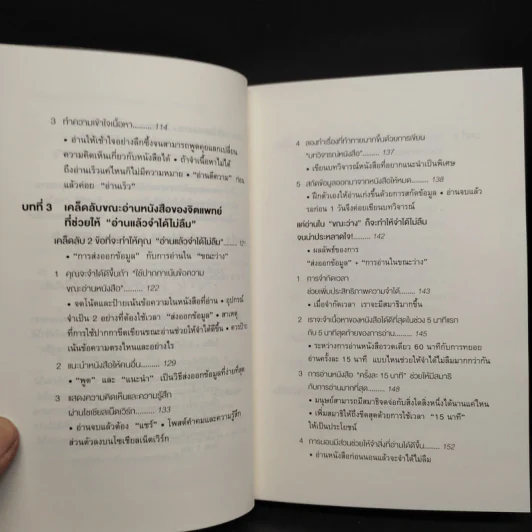 3 ทำความเข้าใจเนื้อหา......... 114
• อ่านให้เข้าใจอย่างลึกซึ้งจนสามารถพูดคุยแลกเปลี่ยน
ความคิดเห็นเกี่ยวกับหนังสือได้ • ถ้าจำเนื้อหาไม่ได้
ถึงอ่านเร็วแค่ไหนก็ไม่มีความหมาย • "อ่านตีความ" ก่อน
แล้วค่อย "อ่านเร็ว"
บทที่ 3 เคล็ดลับขณะอ่านหนังสือของจิตแพทย์
ที่ช่วยให้ "อ่านแล้วจำได้ไม่ลืม"
เคล็ดลับ 2 ข้อที่จะทำให้คุณ "อ่านแล้วจำได้ไม่ลืม"
• "การส่งออกข้อมูล" กับการอ่าน ใน "ขณะว่าง"
1 คุณจะจำได้ดีขึ้นถ้า "ใช้ปากกาเน้นข้อความ
ขณะอ่านหนังสือ"......... 122
• จดโน้ตและป้ายเน้นข้อความในหนังสือที่อ่าน • อุปกรณ์
จำเป็น 2 อย่างที่ต้องใช้เวลา "ส่งออกข้อมูล" • สาเหตุ
ที่การใช้ปากกาขีดเขียนขณะอ่านช่วยให้จำได้ดีขึ้น • ควรป้าย
เน้นข้อความตรงไหนและอย่างไร
2 แนะนำหนังสือให้คนอื่น......... 129
• "พูด" และ "แนะนำ" เป็นวิธีส่งออกข้อมูลที่ง่ายที่สุด
3 แสดงความคิดเห็นและความรู้สึก
ผ่านโซเชียลเน็ตเวิร์ก......... 133
• อ่านจบแล้วต้อง "แชร์" • โพสต์คำคมและความรู้สึก
ส่วนตัวลงบนโซเชียลเน็ตเวิร์ก
4 ลองทำเรื่องที่ท้าทายมากขึ้นด้วยการเขียน
"บทวิจารณ์หนังสือ"......... 137
• เขียนบทวิจารณ์หนังสือที่อยากแนะนำเป็นพิเศษ
5 สกัดข้อมูลออกมาจากหนังสือให้หมด......... 138
• ฝึกตัวเองให้อ่านเก่งขึ้นด้วยการสกัดข้อมูล • อ่านจบแล้ว
รอก่อน 1 วันจึงค่อยเขียนบทวิจารณ์
แค่อ่านใน "ขณะว่าง" ก็จะทำให้จำได้ไม่ลืม
จนน่าประหลาดใจ!......... 142
• ผลลัพธ์ของการ
"ส่งออกข้อมูล" + "การอ่านในขณะว่าง"
1 การจำกัดเวลา
ช่วยเพิ่มประสิทธิภาพความจำได้......... 143
• เมื่อจำกัดเวลา เราจะมีสมาธิมากขึ้น
2 เราจะจำเนื้อหาของหนังสือได้ดีที่สุดในช่วง 5 นาทีแรก
กับ 5 นาทีสุดท้ายของการอ่าน......... 145
• ระหว่างการอ่านหนังสือรวดเดียว 60 นาทีกับการทยอย
อ่านครั้งละ 15 นาที แบบไหนช่วยให้จำได้ไม่ลืมมากกว่ากัน
3 การอ่านหนังสือ "ครั้งละ 15 นาที" ช่วยให้มีสมาธิ
กับการอ่านมากที่สุด......... 148
• มนุษย์สามารถมีสมาธิจดจ่อกับสิ่งใดสิ่งหนึ่งได้นานแค่ไหน
• เพิ่มสมาธิให้ถึงขีดสุดด้วยการใช้เวลา "15 นาที"
ให้เป็นประโยชน์
4 การนอนมีส่วนช่วยให้จำสิ่งที่อ่านได้ดีขึ้น......... 152
• อ่านหนังสือก่อนนอนแล้วจะจำได้ไม่ลืม